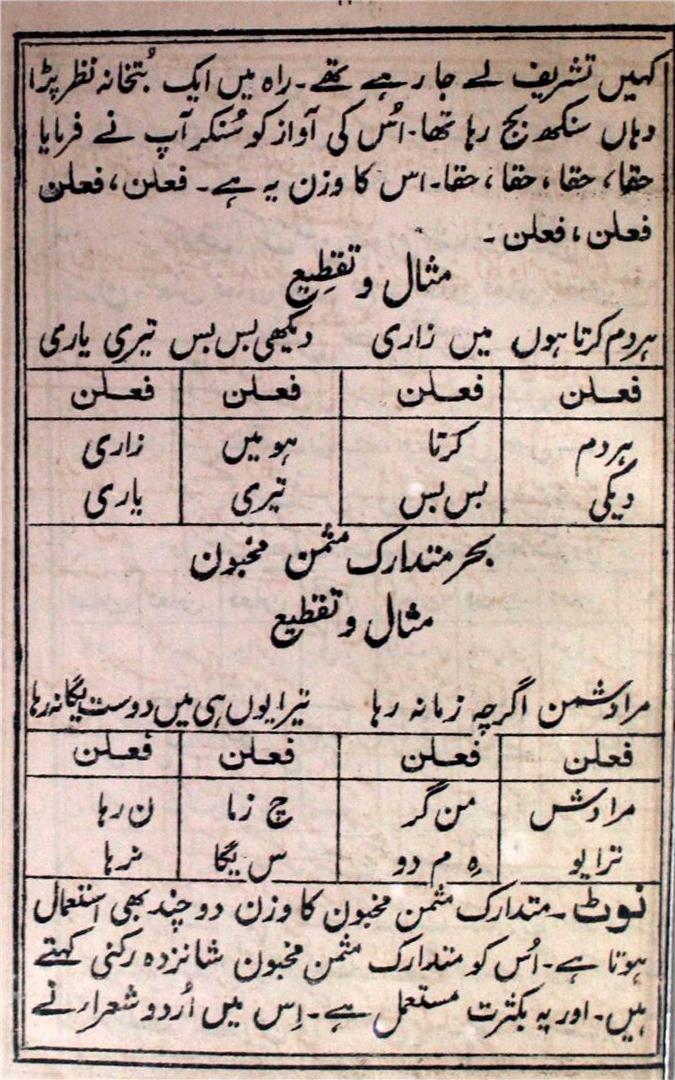 کہیں تشریف لے جا رہے تھے۔ راہ میں ایک بُتخانہ نظر پڑا
وہاں سنکھ بج رہا تھا۔ اُس کی آواز کو سُنکر آپ نے فرمایا
حقا، حقا، حقا، حقا۔ اس کا وزن یہ ہے۔ فعلن، فعلن
فعلن، فعلن۔
مثال و تقطیع
ہر دم کرتا ہوں میں زاری دیکھی بس بس تیری یاری
فعلن فعلن فعلن فعلن
ہردم کرتا ہومیں زاری
دیکی بس بس تیری یاری
بحر متدارک مثمن مخبون
مثال و تقطیع
مرا دشمن اگرچہ زمانہ رہا تیرا یوں ہی میں دوست یگانہ رہا
فعلن فعلن فعلن فعلن
مرادش من گر چ زما ن رہا
ترایو ہِ م دو س یگا نرہا
نوٹ۔ متدارک مثمن مخبون کا وزن دو چند بھی استعمال
ہوتا ہے۔ اُس کو متدارک مثمن مخبون شانزدہ رکنی کہتے
ہیں۔ اور یہ بکثرت مستعمل ہے۔ اِس میں اُردو شعراء نے